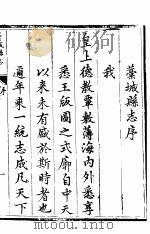 藁城縣志序
我
皇上德教覃敷薄海內外悉享
悉王版圖之式廓自中天
以来未有盛於斯時者也
邇年来一統志成凡天下